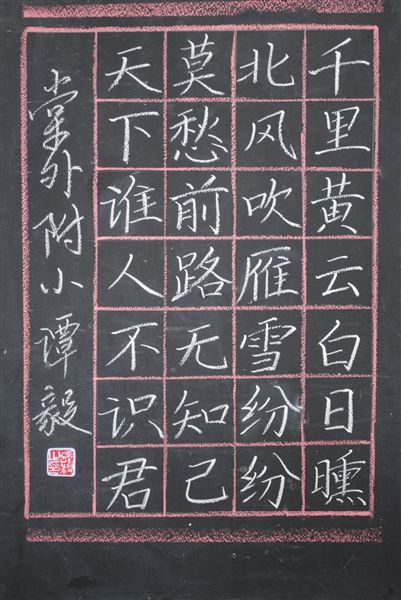 千里黄云白日曛
北风吹雁雪纷纷
莫愁前路无知己
天下谁人不识君
棠外附小谭毅